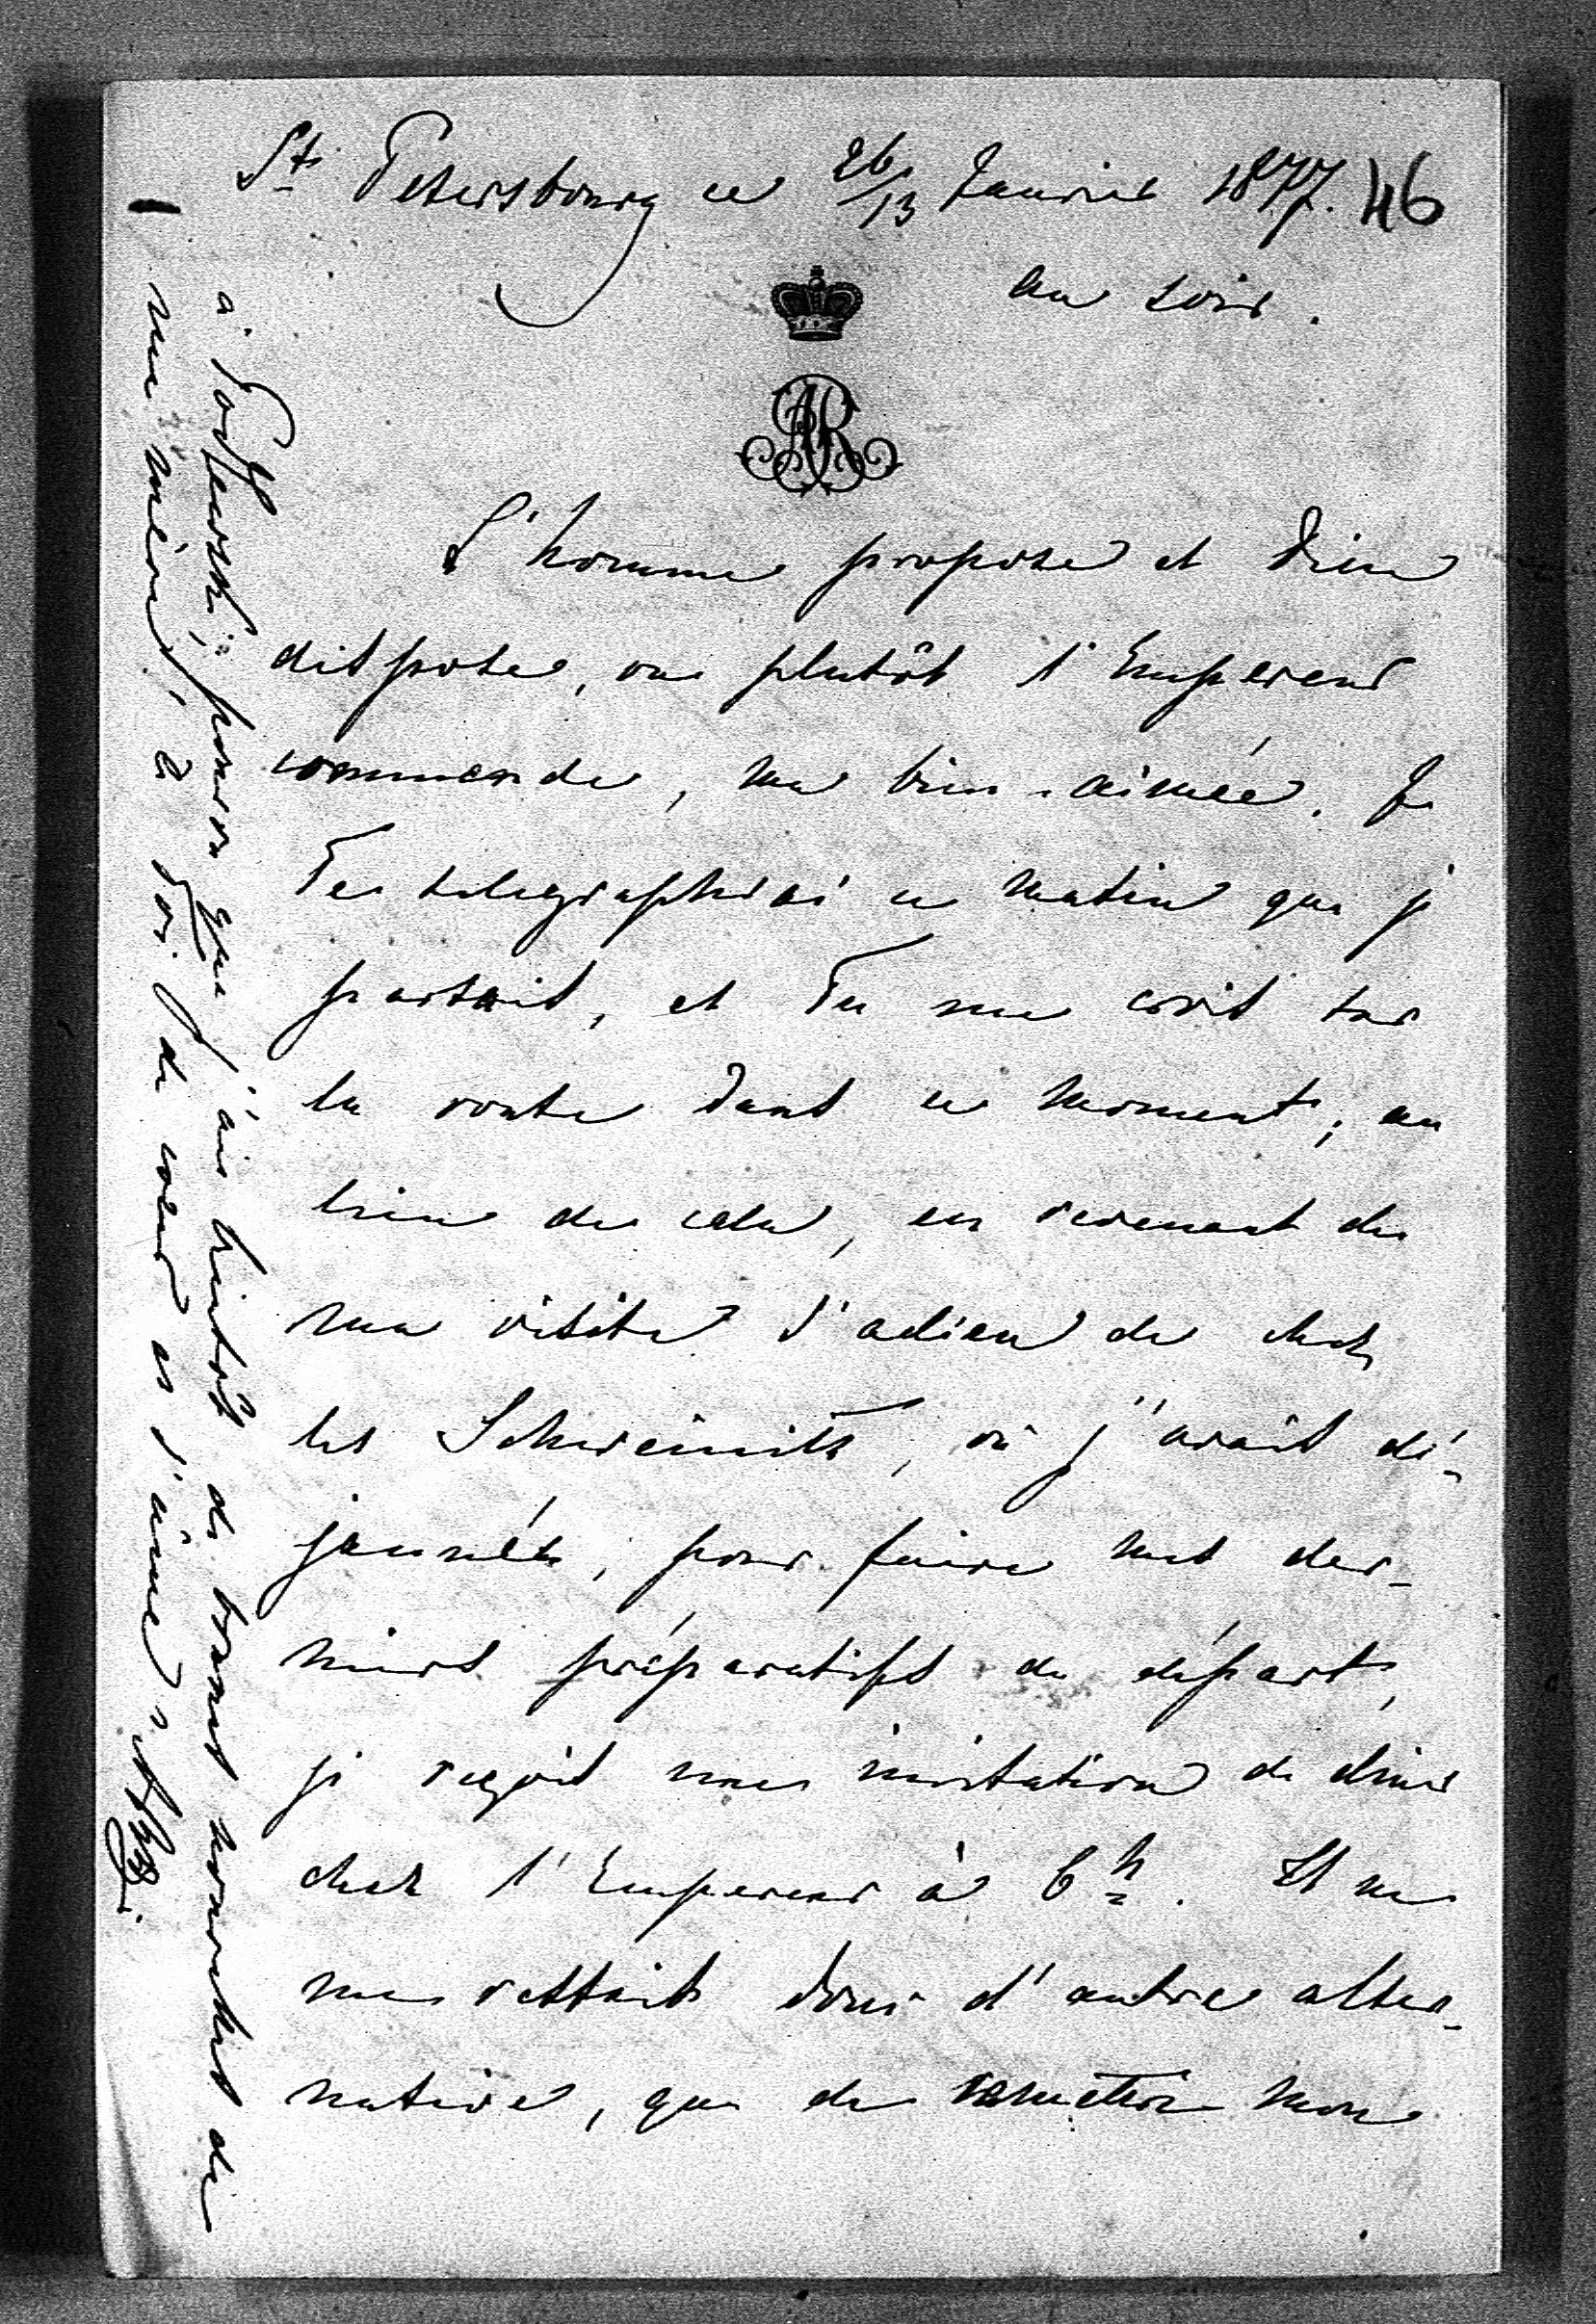 Sts Petersbourg ce 26/13 Janvier 1877. 46
au soir.
AR
L'homme propose et Dieu
dispose, ou plutôt l'Empereur
commande, ma bien-aimée. Je
Te telegraphiai ce matin que je
partais, et Tu me crois sur
la route dans ce moment; au
lieu de cela, en revenant de
ma visite d'adieu de chez
les Schweinitz, où j'avais dé-
jeunér, pour faire mes der-
niers préparatifs de départ,
je reçois une invitation de diner
chez l'Empereur à 6h. Il ne
me restait donc d'autre alter-
native, que de remettre mon
à pourvu que j'aie bientôt de bonnes nouvelles de
ma mère! à Toi de cœur et d'âme,